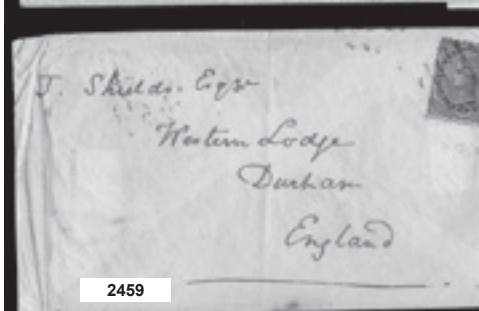 J. Shields. Esqr
Western Lodge
Durham
England
2459